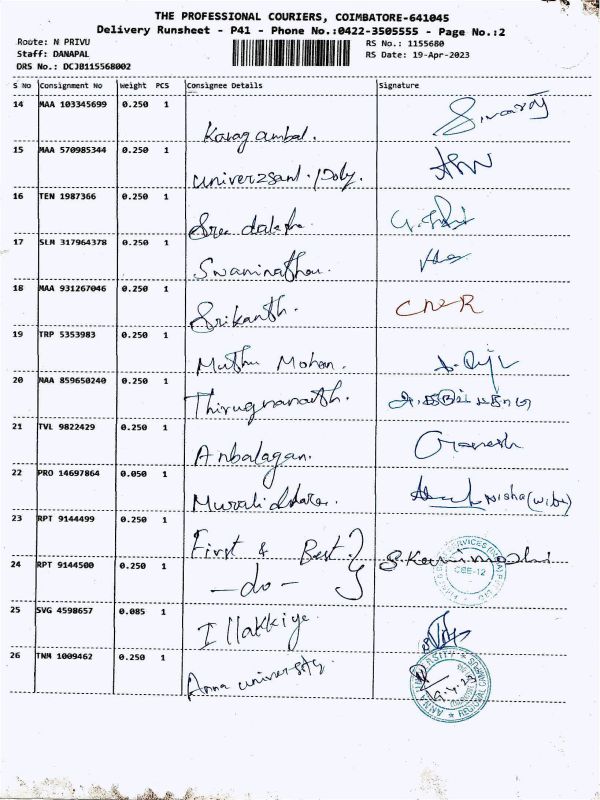 THE PROFESSIONAL COURIERS, COIMBATORE-641045
Delivery Runsheet - P41 - Phone No.:0422-3505555 - Page No.:2
Route: N PRIVU
RS No.: 1155680
Staff: DANAPAL
RS Date: 19-Apr-2023
DRS No.: DCJB115568002
S No Consignment No Weight PCS Consignee Details Signature
14 MAA 103345699 0.250 1
Karagambal.
15 MAA 570985344 0.250 1
16 TEN 1987366 0.250 1
Sree
17 SLM 317964378 0.250 1
Swaminathan
18 MAA 931267046 0.250 1
Srikanth.
19 TRP 5353983 0.250 1
Muthu Mohan.
20 MAA 859650240 0.250 1
21 TVL 9822429 0.250 1
Anbalagan. Ganesh
22 PRO 14697864 0.050 1
Nisha (wife)
23 RPT 9144499 0.250 1
First & Best
24 RPT 9144500 0.250 1
-do-
CBE-12
25 SVG 4598657 0.085 1
Illakkiya
26 TNM 1009462 0.250 1
Anna University
ANNA UNIVERSITY ★ REGIONAL CAMPUS